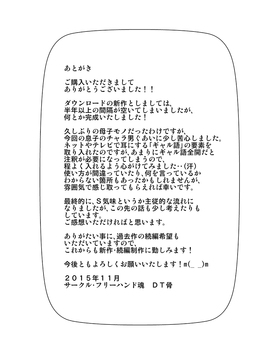 あとがき
ご購入いただきまして
ありがとうございました！！
ダウンロードの新作としましては、
半年以上の間隔が空いてしまいましたが、
何とか完成いたしました！
久しぶりの母子モノだったわけですが、
今回の息子のチャラ男ぐあいに少し苦心しました。
ネットやテレビで耳にする「ギャル語」の要素を
取り入れたのですが、あまりにギャル語全開だと
注釈が必要になってしまうので、
程よく入れるよう心がけてみました‥(汗)
使い方が間違っていたり、何を言っているか
わからない箇所もあったかもしれませんが、
雰囲気で感じ取ってもらえれば幸いです。
最終的に、Ｓ気味というか主従的な流れに
なりましたが、この先の話も少し考えたりも
しています。
ご感想いただければと思います。
ありがたい事に、過去作の続編希望も
いただいていますので、
これからも新作・続編制作に勤しみます！
今後ともよろしくお願いいたします！m(_ _)m
２０１５年１１月
サークル・フリーハンド魂　ＤＴ骨